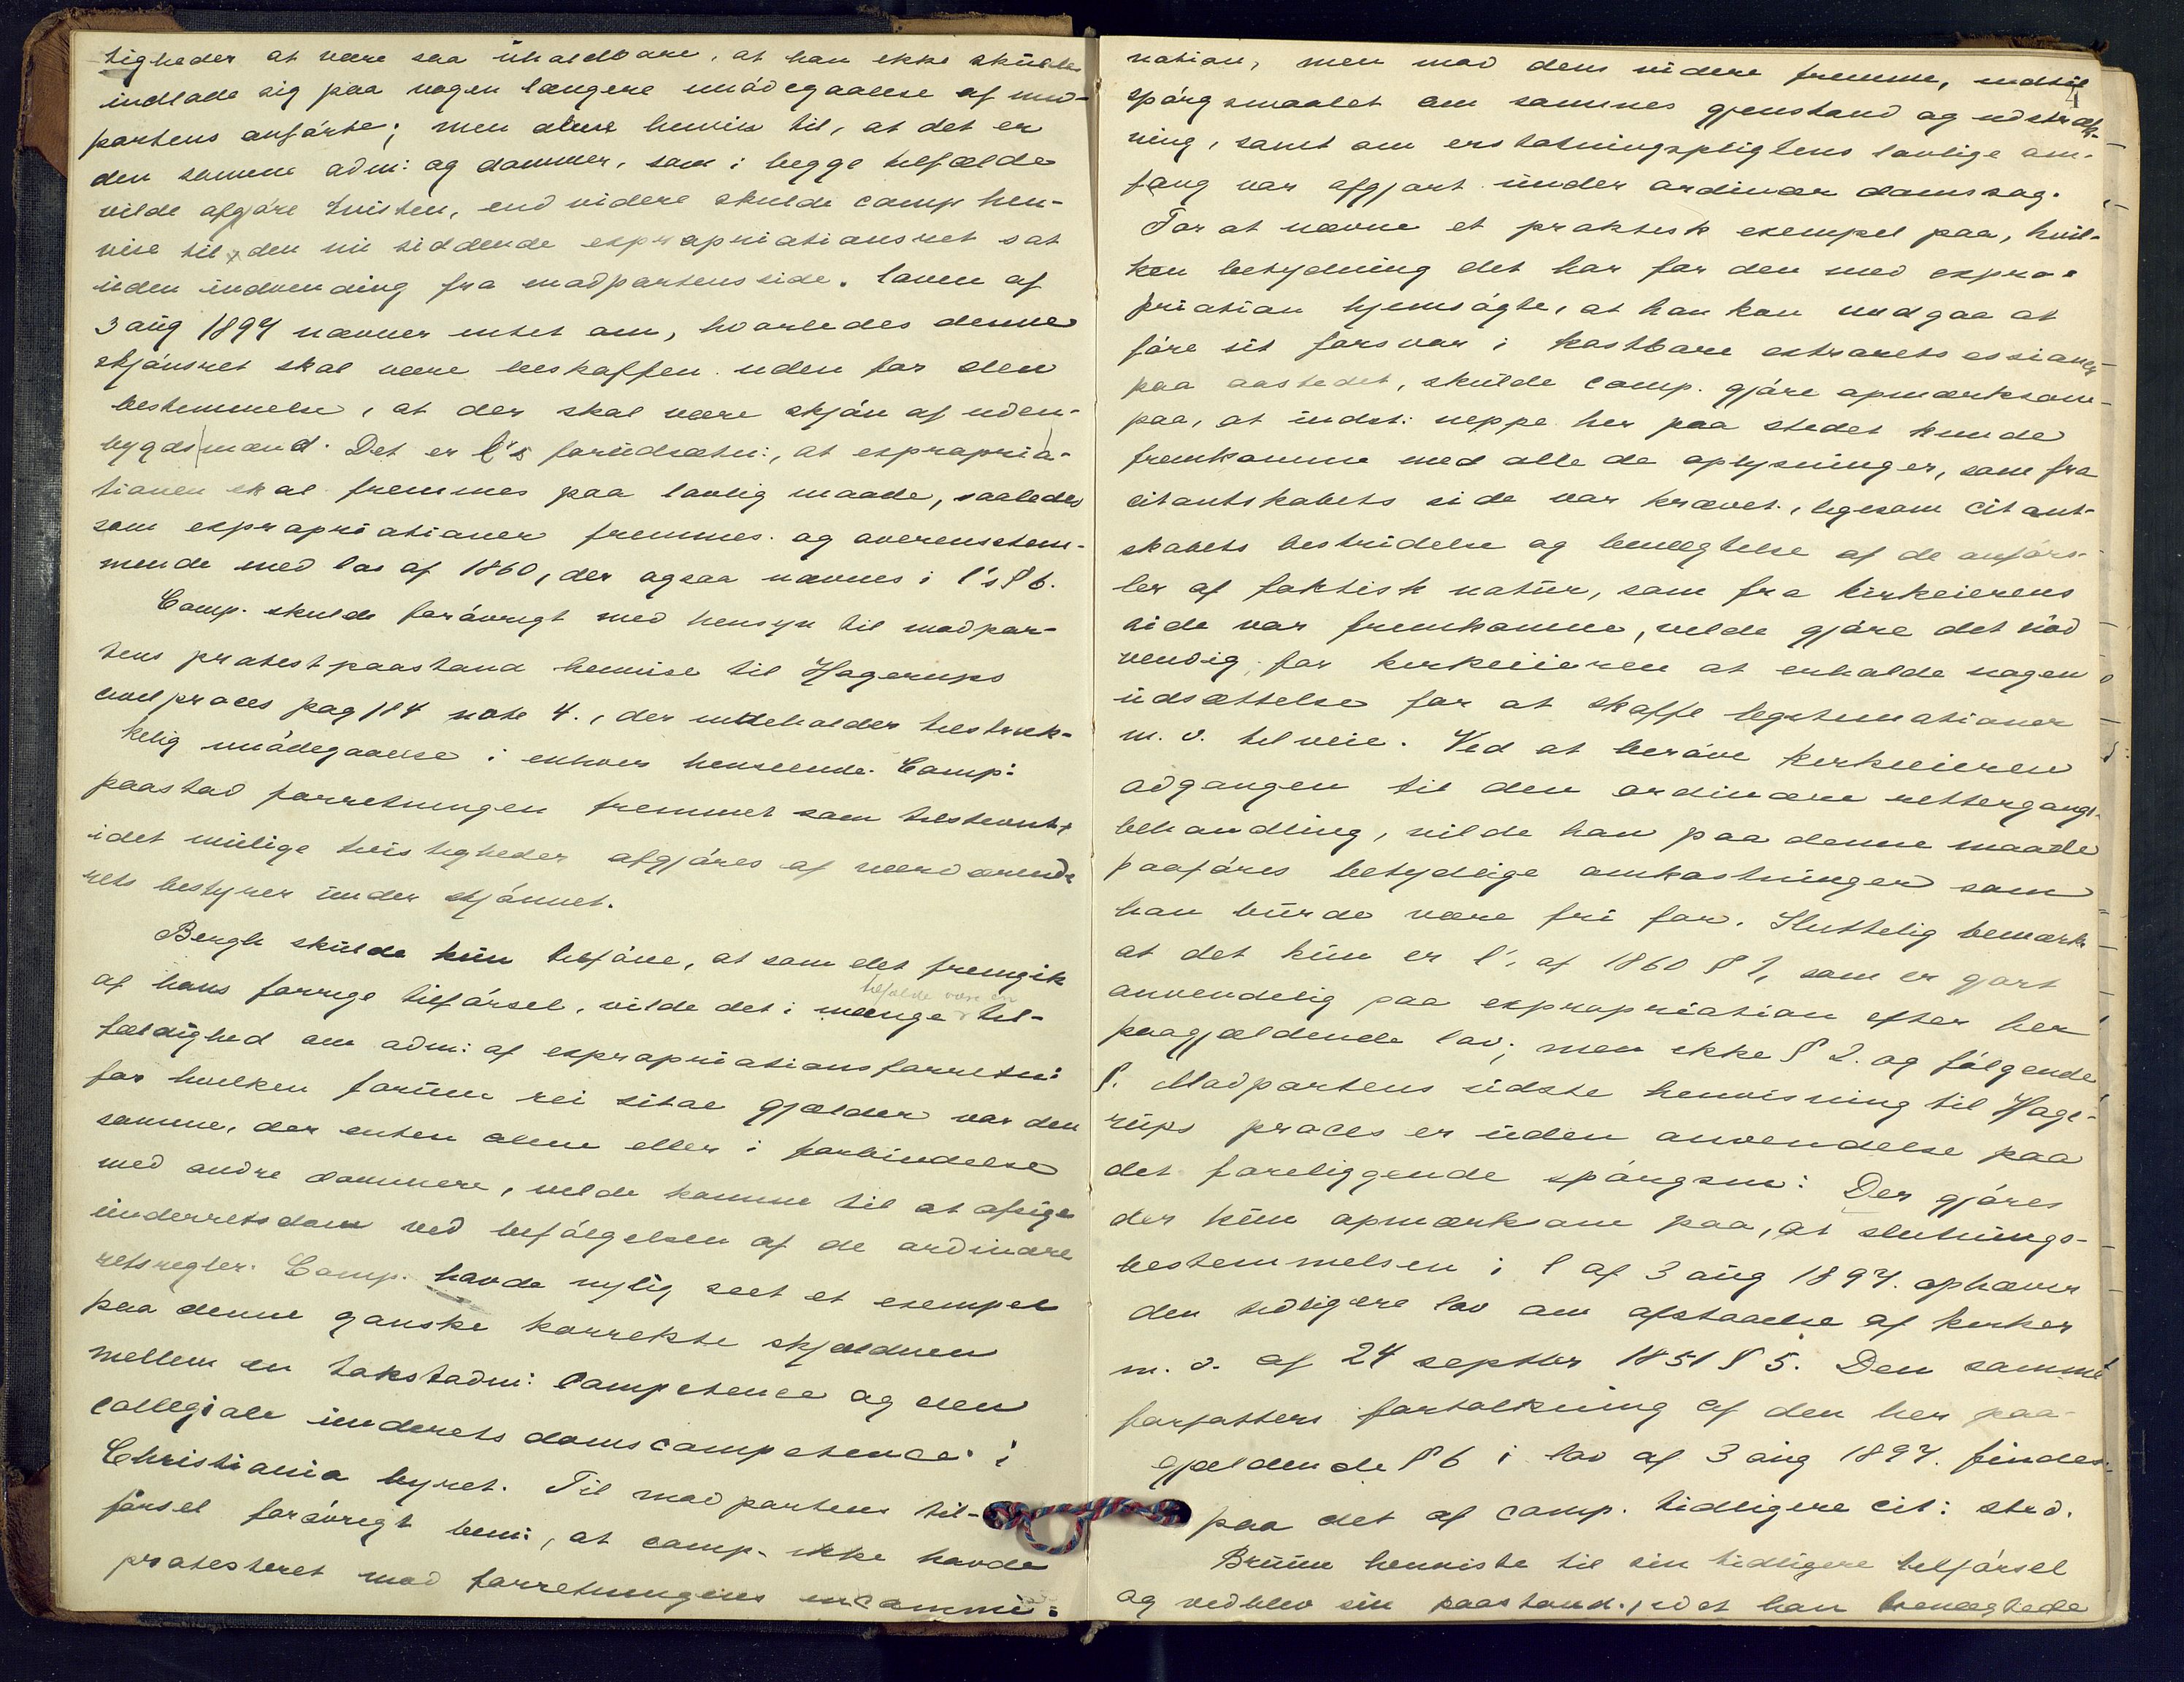 tigheder at være saa uholdbare, at han ikke skulde
indlade sig paa nogen længere imødegaaelse af mod-
partens anførte; men alene henvise til, at det er
den samme adm: og dommer, som i begge tilfælde
vilde afgjøre tvisten, end videre skulde comp hen-
vise til, den nu siddende expropriationsret sat
uden indvending fra modpartens side. Loven af
3 aug 1897 nævner intet om, hvorledes denne
skjønsret skal være beskaffen uden for den
bestemmelse, at der skal være skjøn af uden-
bygdsmænd. Det er l's forudsætn:, at expropria-
tionen skal fremmes paa lovlig maade, saaledes
som expropriationer fremmes og overensstem-
mende med lov af 1860, der ogsaa nævnes i l's § 6.
Comp. skulde forøvrigt med hensyn til modpar-
tens protestpaastand henvise til Hagerups
civilproces pag 184 note 4., der indeholder tilstræk-
kelig imødegaaelse i enhver henseende. Comp:
paastod forretningen fremmet som tilstevnt,
idet mulige tvistigheder afgjøres af nærværende
rets bestyrer under skjønnet.
Bergh skulde kun tilføie, at som det fremgik
af hans forrige tilførsel, vilde det i mange til-
tilfælde være en
fældighed om adm: af expropriationsforretn:
for hvilken forum rei sitae gjælder var den
samme, der enten alene eller i forbindelse
med andre dommere, vilde komme til at afsige
underretsdom ved befølgelsen af de ordinære
retsregler. Comp. havde nylig seet et exempel
paa denne ganske korrekte skjælnen
mellem en takstadm: competence og den
collegiale underrets domscompetence i
Christiania byret. Til modpartens til-
førsel forøvrigt bem:, at comp. ikke havde
protesteret mod forretningens incammi-
4
nation, men mod dens videre fremme, indtil
spørgsmaalet om sammes gjenstand og udstræk-
ning, samt om erstatningspligtens lovlige om-
fang var afgjort under ordinær domssag.
For at nævne et praktisk exempel paa, hvil-
ken betydning det har for den med expro-
priation hjemsøgte, at han kan undgaa at
føre sit forsvar i kostbare extraretssessioner
paa aastedet, skulde comp. gjøre opmærksom
paa, at indst: neppe her paa stedet kunde
fremkomme med alle de oplysninger, som fra
citantskabets side var krævet, ligesom citant-
skabets bestridelse og benegtelse af de anførs-
ler af faktisk natur, som fra kirkeierens
side var fremkomne, vilde gjøre det nød
vendig for kirkeeieren at erholde nogen
udsættelse for at skaffe legitimationer
m. v. tilveie. Ved at berøve kirkeeieren
adgangen til den ordinære rettergangs-
behandling, vilde han paa denne maade
paaføres betydelige omkostninger som
han burde være fri for. Sluttelig bemærk
at det kun er l. af 1860 § 1, som er gjort
anvendelig paa expropriation efter her
paagjældende lov; men ikke § 2. og følgende
§. Modpartens sidste henvisning til Hage-
rups proces er uden anvendelse paa
det foreliggende spørgsm: Der gjøres
der kun opmærksom paa, at slutnings-
bestemmelsen i l af 3 aug 1897. ophæver
den tidligere lov om afstaaelse af kirker
m. v. af 24 septbr 1851 § 5. Den samme
forfatters fortolkning af den her paa-
gjældende § 6 i lov af 3 aug 1897. findes
paa det af comp. tidligere cit: sted.
Bruun henviste til sin tidligere tilførsel
og vedblev sin paastand, idet han benægtede